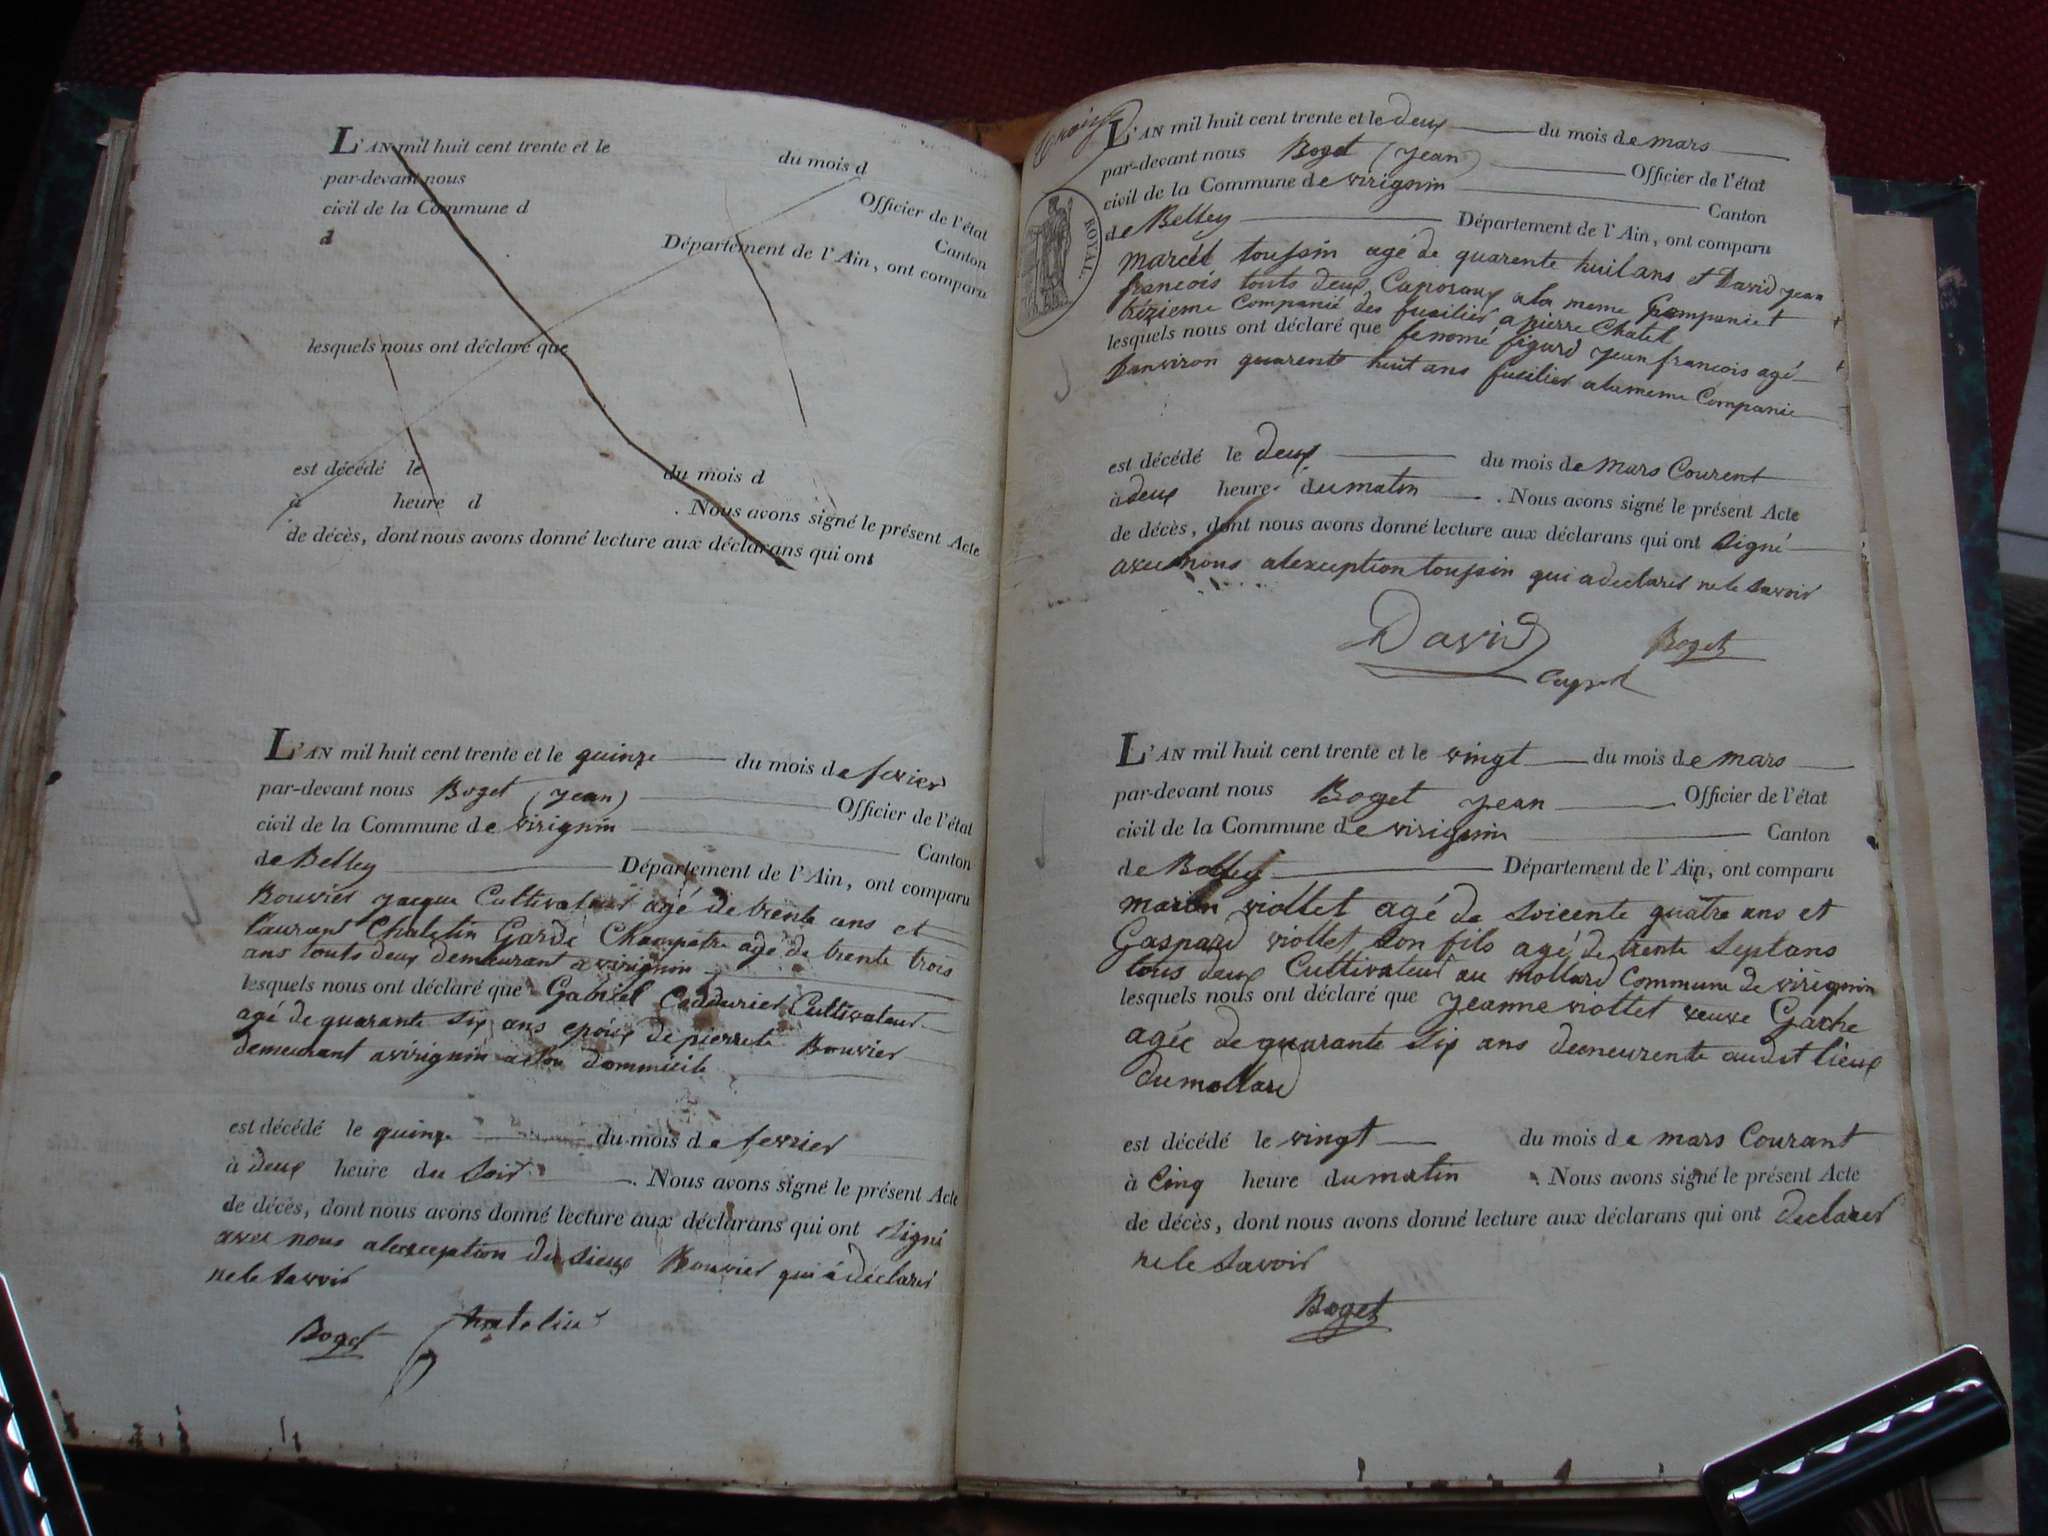 L'AN mil huit cent trente et le du mois d
par-devant nous Officier de l'état
civil de la Commune d Canton
d Département de l'Ain, ont comparu
lesquels nous ont déclaré que
est décédé le du mois d
à heure d . Nous avons signé le présent Acte
de décès, dont nous avons donné lecture aux déclarans qui ont
L'AN mil huit cent trente et le quinze du mois de fevrier
par-devant nous Boget (jean) Officier de l'état
civil de la Commune de virignin Canton
de Belley Département de l'Ain, ont comparu
Bouvier jacque Cultivateur agé de trente ans et
laurant Chatelin Garde Champetre agé de trente trois
ans touts deux demeurant a virignin
lesquels nous ont déclaré que Gabriel Cultivateur
agé de quarante six ans epoux de pierrete Bouvier
demeurant a virignin a son dommicile
est décédé le quinze du mois de fevrier
à deux heure du soir . Nous avons signé le présent Acte
de décès, dont nous avons donné lecture aux déclarans qui ont signé
avec nous alexception du sieux Bouvier qui à déclarer
ne le savoir
Boget
L'AN mil huit cent trente et le deux du mois de mars
par-devant nous Boget (jean) Officier de l'état
civil de la Commune de virignin Canton
ROYAL.
de Belley Département de l'Ain, ont comparu
marcel toussin agé de quarente huit ans et David jean
francois touts deux Caporaux a la meme Companie
trézieme Companie des fusilier a pierre Chatel
lesquels nous ont déclaré que le nomé figard jean francois agé
Danviron quarente huit ans fusilier a la meme Companie
est décédé le deux du mois de mars Courent
à deux heure du maton . Nous avons signé le présent Acte
de décès, dont nous avons donné lecture aux déclarans qui ont signé
avec nous alexception toussin qui a declarer ne le savoir
David Boget
L'AN mil huit cent trente et le vingt du mois de mars
par-devant nous Boget jean Officier de l'état
civil de la Commune de virignin Canton
de Belley Département de l'Ain, ont comparu
viollet agé de soicente quatre ans et
Gaspard viollet son fils agé de trente sept ans
tous deux Cultivateur au mollard Commune de virignin
lesquels nous ont déclaré que jeanne viollet veuve Gache
agée de quarante six ans demeurente audit lieux
du mollard
est décédé le vingt du mois de mars Courant
à Cinq heure du matin . Nous avons signé le présent Acte
de décès, dont nous avons donné lecture aux déclarans qui ont declarer
ne le savoir
Boget